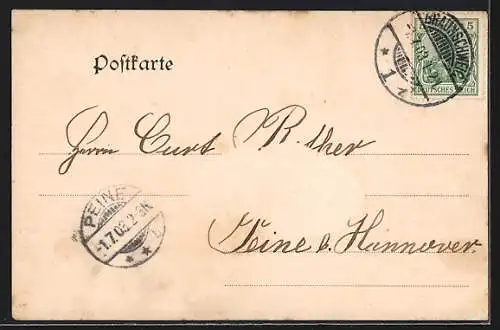 BRAUNSCHWEIG
* 1 z
5
DEUTSCHES REICH
Postkarte
Herrn Curt R. ther
PEINE
-1.7.03. 2-3N.
* *
Peine b. Hannover.